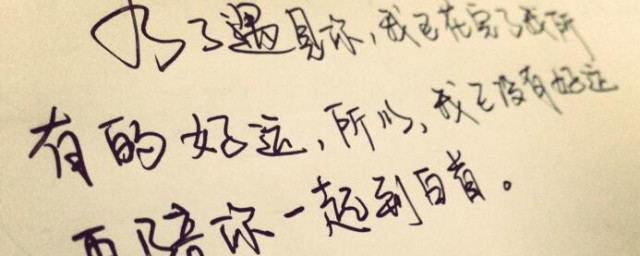 为了遇见你，我已花完了我所
有的好运，所以，我已没有好运
再陪你一起到白首。